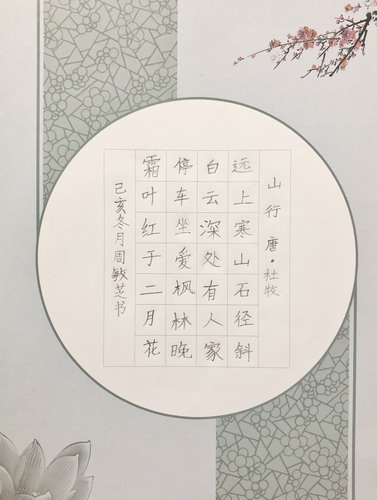 山行 唐·杜牧
远上寒山石径斜
白云深处有人家
停车坐爱枫林晚
霜叶红于二月花
己亥冬月周敏芝书